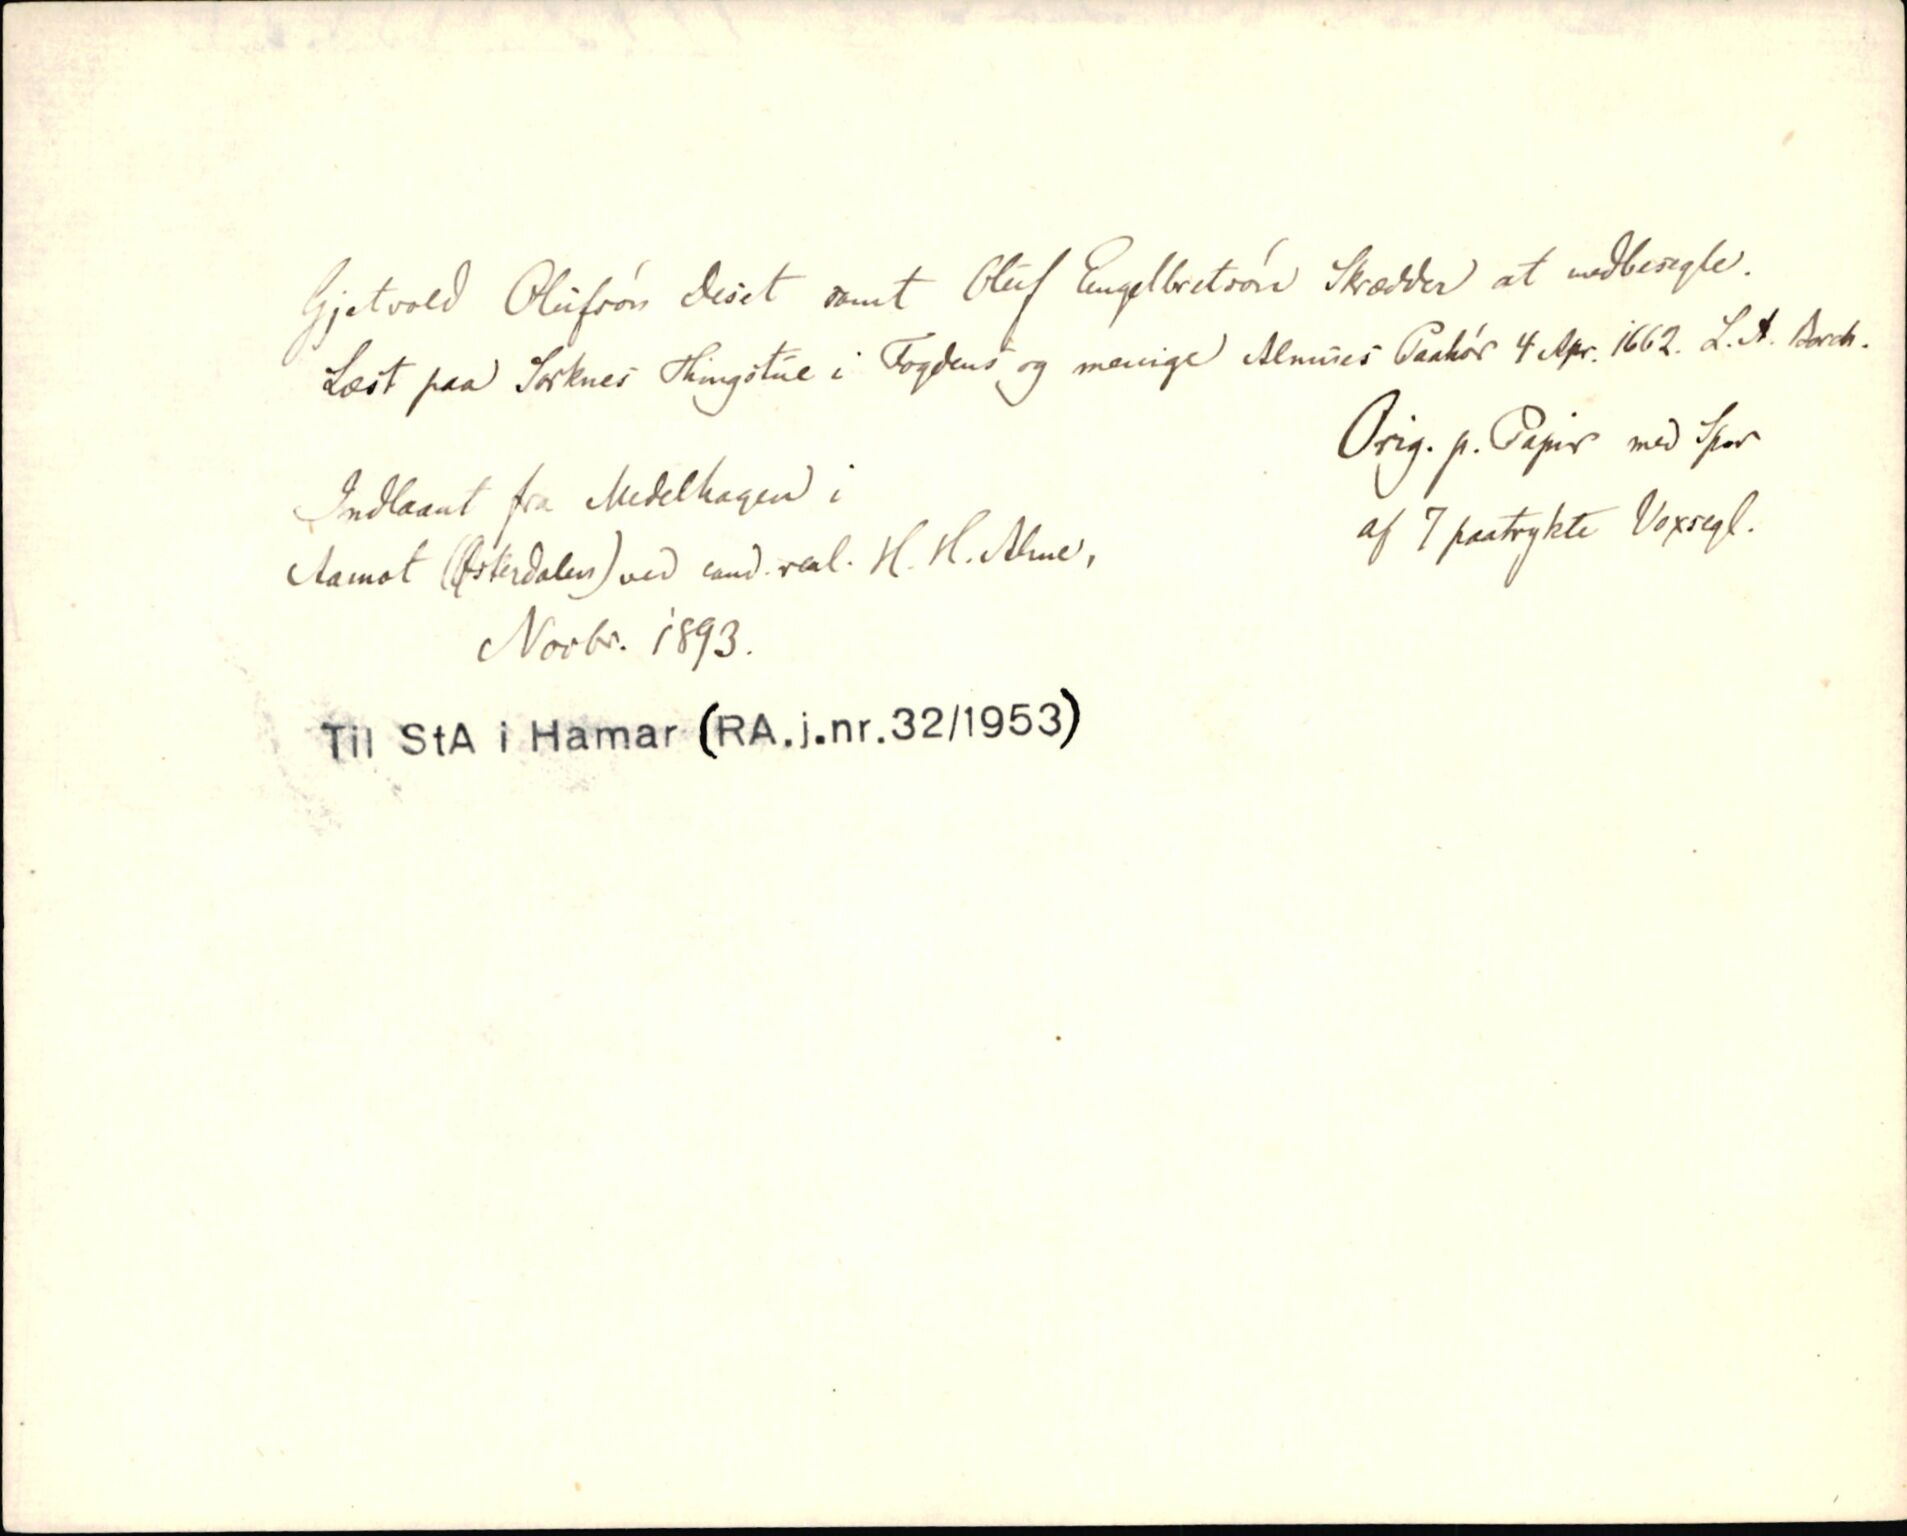 Gjetvold Olufsön Deset samt Oluf Engelbretsön Skrædder at medbesegle.
Læst paa Sorknes Thingstue i Fogdens og menige Almues Paahör 4 Apr. 1662. L. A. Borch.
Orig. p. Papir med Spor
af 7 paatrykte Voxsegl.
Indlaant fra Medelhagen i
Aamot (Østerdalen) ved cand. real. H. H. Alme,
Novbr. 1893.
Til StA i Hamar (RA.j.nr.32/1953)